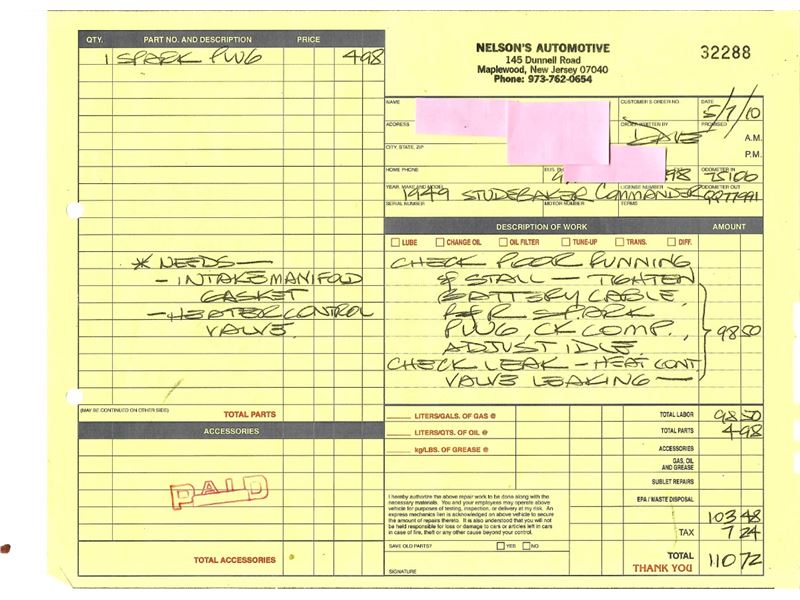 QTY. PART NO. AND DESCRIPTION PRICE
1 SPARK PLUG 4 98
* NEEDS —
- INTAKE MANIFOLD
GASKET
- HEATER CONTROL
VALVE.
(MAY BE CONTINUED ON OTHER SIDE) TOTAL PARTS
ACCESSORIES
PAID
TOTAL ACCESSORIES
NELSON'S AUTOMOTIVE
145 Dunnell Road
Maplewood, New Jersey 07040
Phone: 973-762-0654
32288
NAME CUSTOMER'S ORDER NO. DATE
5/7/10
ADDRESS ORDER WRITTEN BY PROMISED
DAVE A.M.
CITY, STATE, ZIP P.M.
HOME PHONE BUS. ODOMETER IN
98 75100
YEAR, MAKE AND MODEL LICENSE NUMBER ODOMETER OUT
1949 STUDEBAKER COMMANDER
SERIAL NUMBER MOTOR NUMBER TERMS
DESCRIPTION OF WORK AMOUNT
LUBE CHANGE OIL OIL FILTER TUNE-UP TRANS. DIFF.
CHECK POOR RUNNING
& STALL — TIGHTEN
BATTERY CABLE,
R&R SPARK
PLUG, CK COMP., 98 50
ADJUST IDLE.
CHECK LEAK - HEAT CONT
VALVE LEAKING —
LITERS/GALS. OF GAS @ TOTAL LABOR 98 50
LITERS/QTS. OF OIL @ TOTAL PARTS 4 98
kg/LBS. OF GREASE @ ACCESSORIES
GAS, OIL
AND GREASE
SUBLET REPAIRS
EPA / WASTE DISPOSAL
I hereby authorize the above repair work to be done along with the
necessary materials. You and your employees may operate above
vehicle for purposes of testing, inspection, or delivery at my risk. An
express mechanics lien is acknowledged on above vehicle to secure
the amount of repairs thereto. It is also understood that you will not
be held responsible for loss or damage to cars or articles left in cars
in case of fire, theft or any other cause beyond your control.
103 48
TAX 7 24
SAVE OLD PARTS? YES NO
TOTAL 110 72
THANK YOU
SIGNATURE